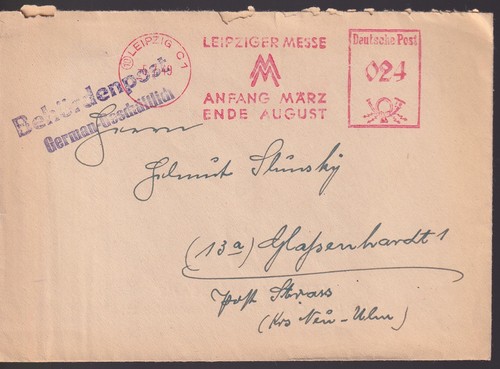 LEIPZIG C1
LEIPZIGER MESSE
MM
ANFANG MÄRZ
ENDE AUGUST
Deutsche Post
024
Behördenpost
Herrn
Helmut
(13a) Glaßenhardt 1
Post Strass
(Krs Neu-Ulm)